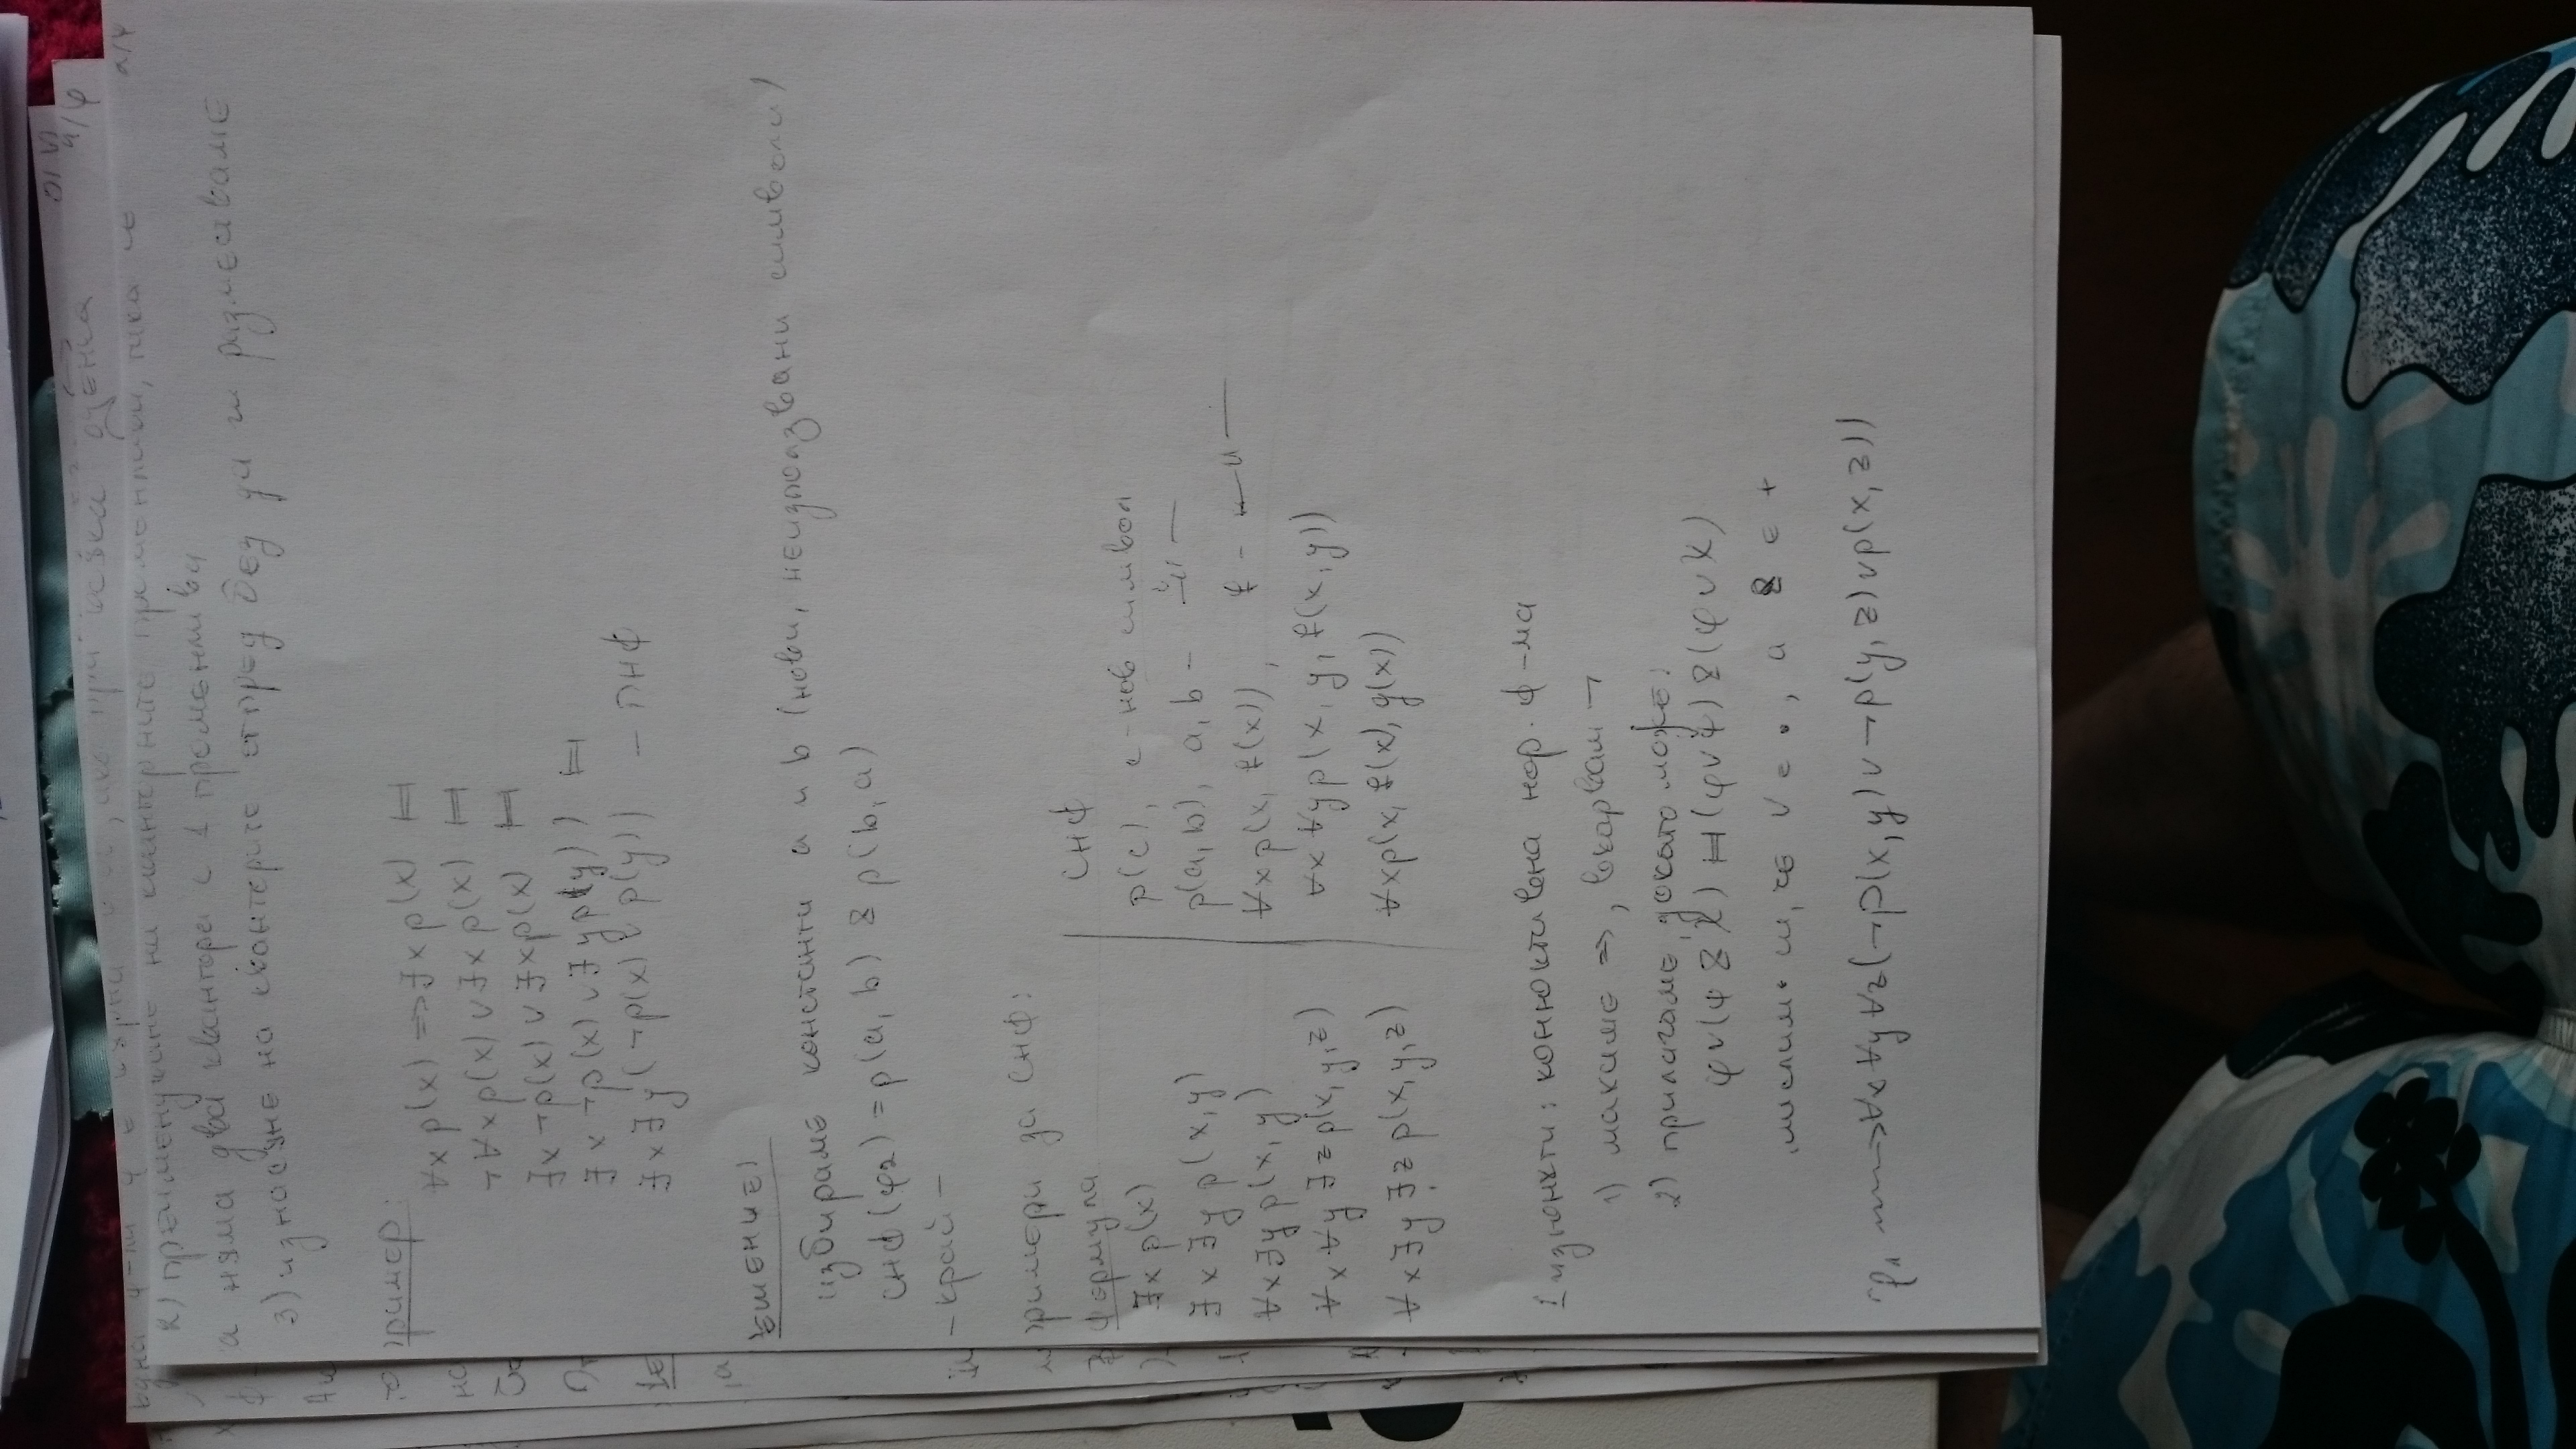 2) преименуване на кванторните променливи, така че
а няма два квантора с 1 променлива
3) изнасяне на кванторите отпред без да ги размесваме
пример:
∀x p(x) => ∃x p(x) ⊨
¬∀x p(x) ∨ ∃x p(x) ⊨
∃x ¬p(x) ∨ ∃x p(x) ⊨
∃x ¬p(x) ∨ ∃y p(y) ⊨
∃x ∃y (¬p(x) ∨ p(y)) – ПНФ
ешение:
избираме константи a и b (нови, неизползвани символи)
СНФ(φ₂) = p(a, b) & p(b, a)
– край –
примери за СНФ:
формула | СНФ
∃x p(x) | p(c), c – нов символ
∃x ∃y p(x,y) | p(a,b), a,b – –"–
∀x ∃y p(x,y) | ∀x p(x, f(x)), f – –"–
∀x ∀y ∃z p(x,y,z) | ∀x ∀y p(x, y, f(x,y))
∀x ∃y ∃z p(x,y,z) | ∀x p(x, f(x), g(x))
изюнкти: конюнктивна нор. ф-ма
1) махаме =>, вкарвам ¬
2) прилагаме, докато може:
φ ∨ (ψ & χ) ⊨ (φ ∨ ψ) & (φ ∨ χ)
мислим си, че ∨ е •, а & е +
φ₁ ⟿ ∀x ∀y ∀z (¬p(x,y) ∨ ¬p(y,z) ∨ p(x,z))